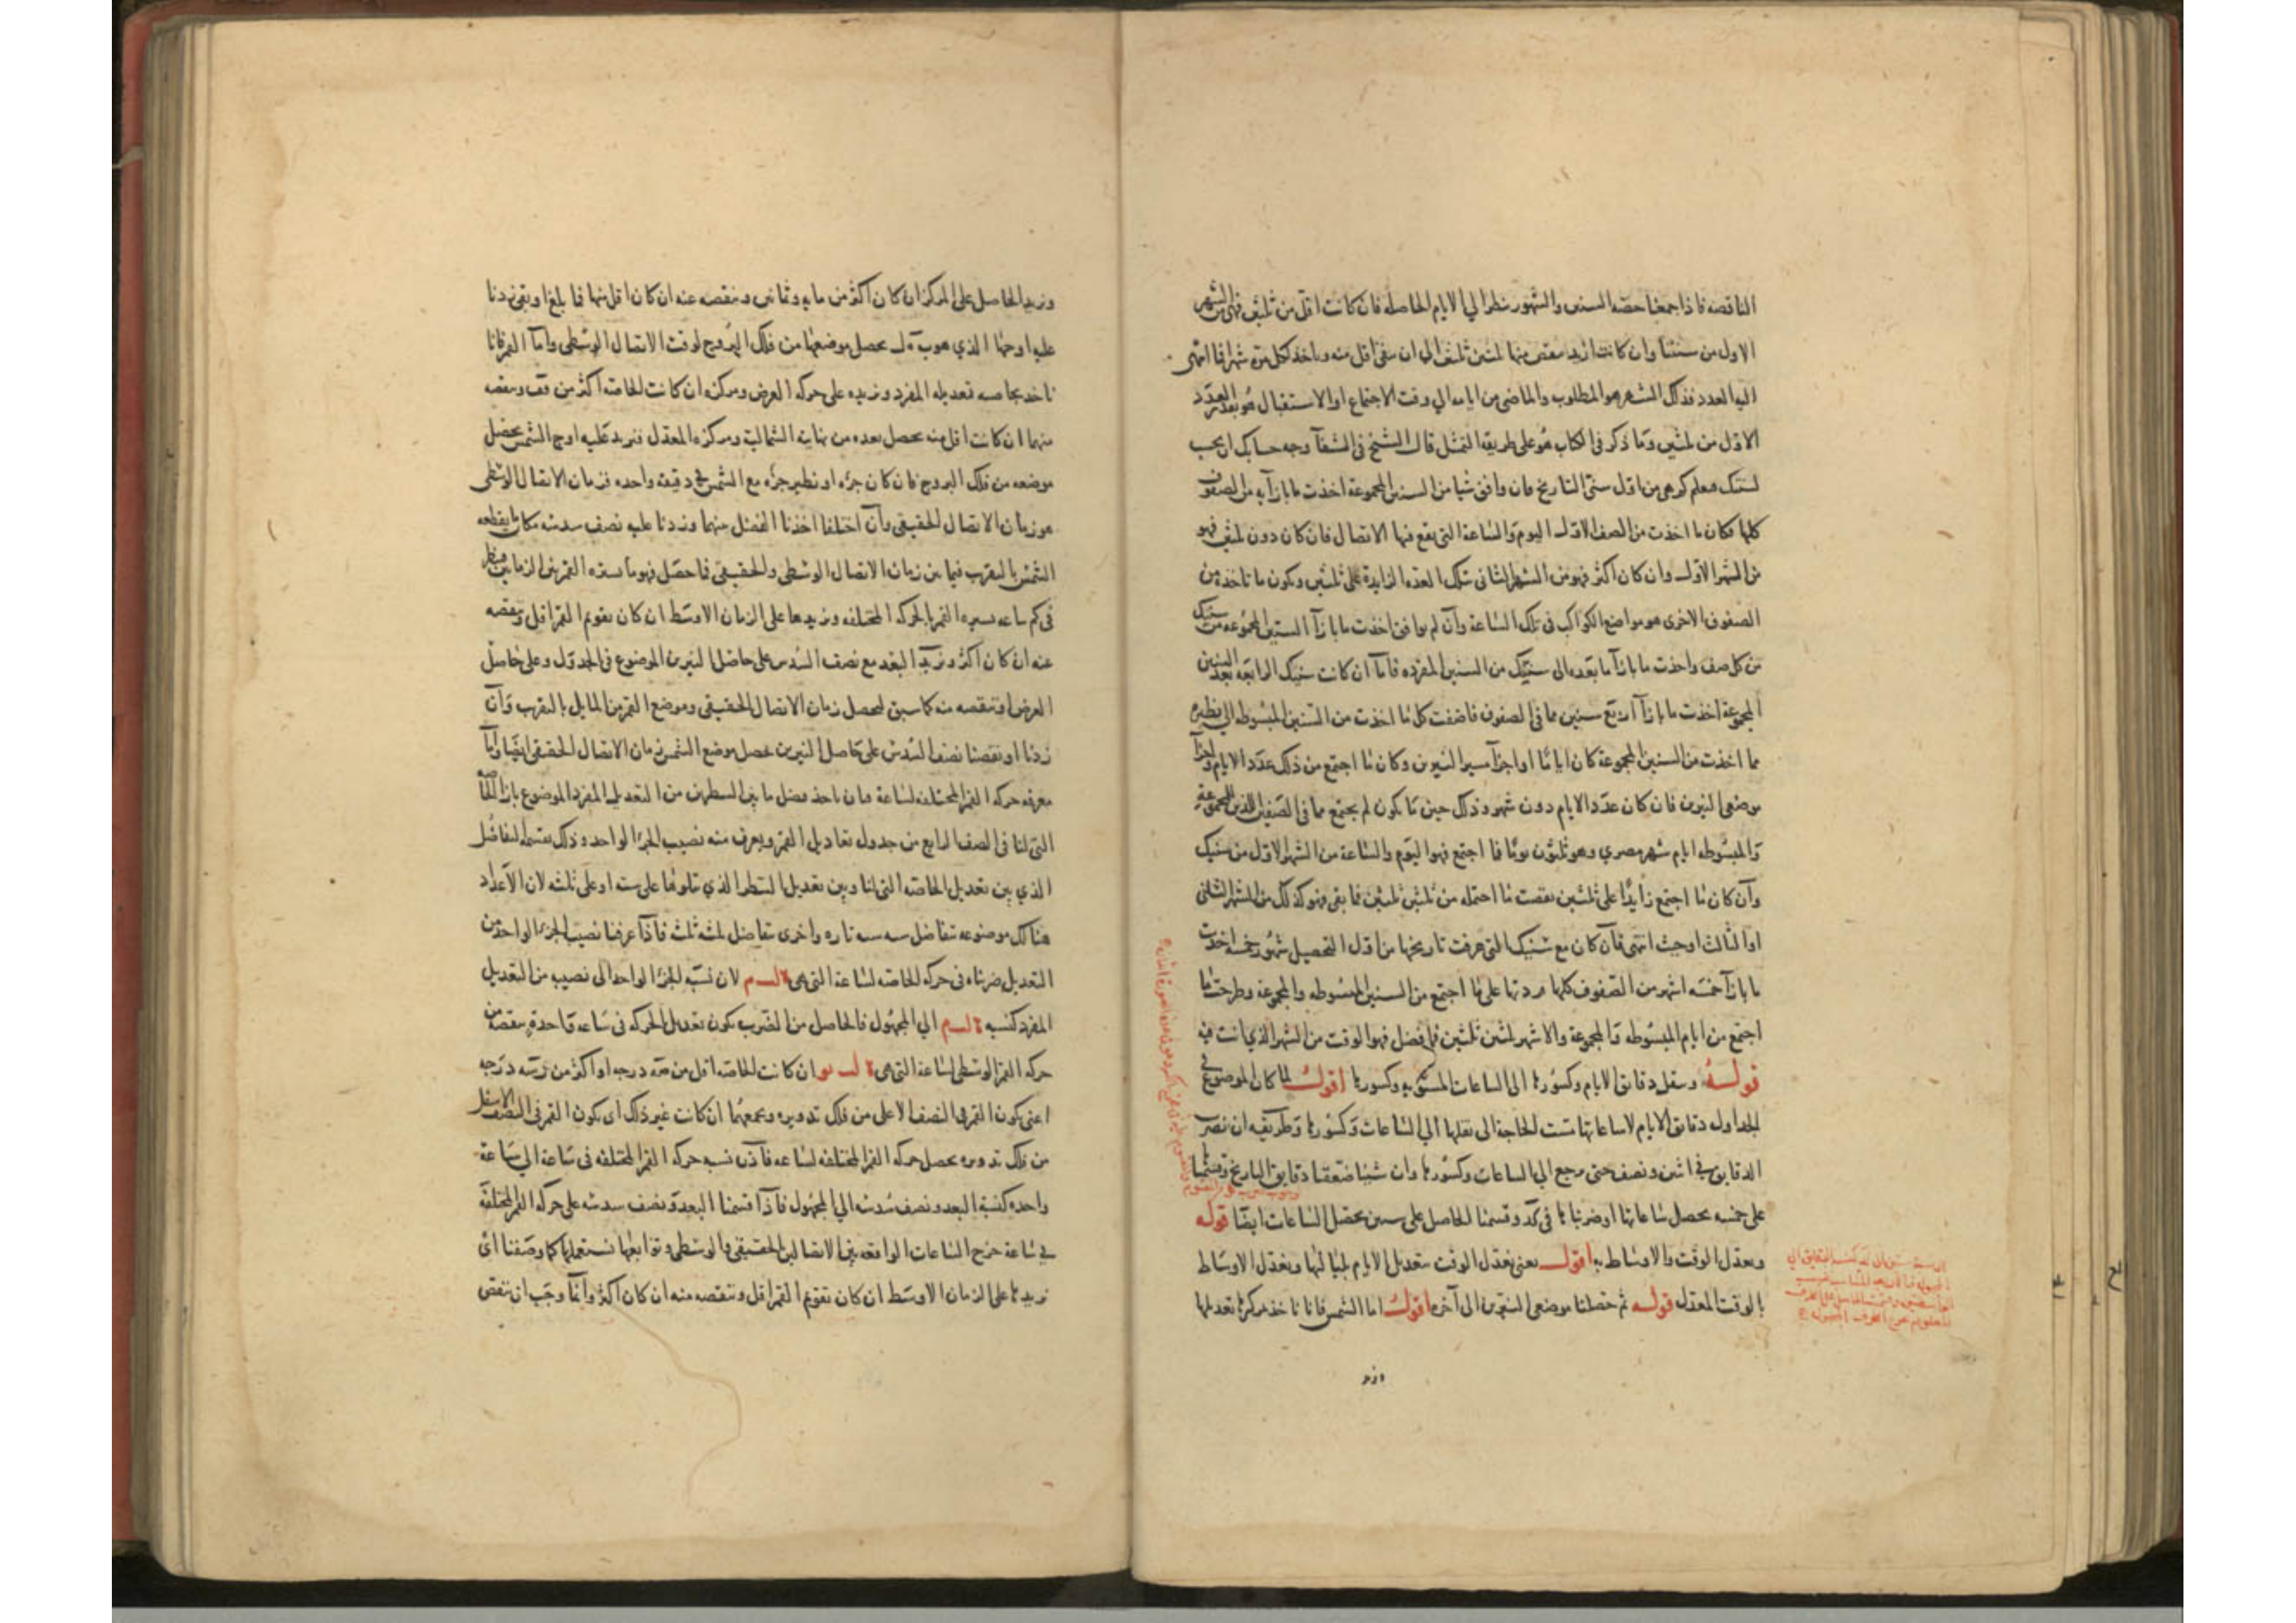 الناقصه فاذا جمعنا حصه السنين والشهور نظرنا الي الايام الحاصله فان كانت اقل من ثلثين فهى من الشهر
الاول من سنتنا وان كانت ازيد ننقص منها ثلثين ثلثين الى ان يبقى اقل منه وناخذ لكل مرة شهرا فما انتهى
اليه العدد فذلك الشهر هو المطلوب والماضى من ايامه الي وقت الاجتماع او الاستقبال هو بعدد
الاول من ثلثين وما ذكر فى الكتاب هو على طريقه التمثل قال الشيخ فى الشفآ وجه حسابك ان يحسب
لسنتك فتعلم كم هى من اول سنى التاريخ فان وافق شيا من السنين المجموعة اخذت ما بازآيه من الصفوف
كلها فكان ما اخذت من الصف الاول اليوم والساعة التى يقع فيها الاتصال فان كان دون ثلثين فهو
من الشهر الاول وان كان اكثر فهو من الشهر الثانى بتلك العده الزايدة على ثلثين ويكون ما تاخذه من
الصفوف الاخرى هو مواضع الكواكب فى تلك الساعة وان لم يوافق اخذت ما بازآ السنين المجموعه من سنيك
من كل صف واخذت ما بازآ ما بعده الى سنيك من السنين المفرده فاما ان كانت سنيك الرابعه بعد السنين
المجموعة اخذت ما بازآ اربع سنين مما فى الصفوف فاضفت كل ما اخذت من السنين المبسوطه الى نظيره
مما اخذت من السنين المجموعة كان اياما او اجزآ مسير النيرين وكان ما اجتمع من ذلك عدد الايام واجزآ
موضعى النيرين فان كان عدد الايام دون شهر وذلك حين ما يكون لم يجتمع مما فى الصفين للذين للمجموعة
والمبسوطه ايام شهر مصري وهو ثلثون يوما فما اجتمع فهو اليوم والساعة من الشهر الاول من سنيك
وان كان ما اجتمع زايدا على ثلثين نقصت ما احتمله من ثلثين ثلثين فما بقى فهو كذلك من الشهر الثانى
او الثالث او حيث انتهى فان كان مع سنيك التى عرفت تاريخها من اول التحصيل شهور خمسه اخذت
ما بازآ خمسه اشهر من الصفوف كلها فزدتها على ما اجتمع من السنين المبسوطه والمجموعة وطرحت ما
اجتمع من ايام المبسوطه والمجموعة والاشهر ثلثين ثلثين فما فضل فهو الوقت من الشهر الذي انت فيه
قوله وننقل دقايق الايام وكسورها الى الساعات المستويه وكسورها اقول لما كان الموضوع في
الجداول دقايق الايام لا ساعاتها مست الحاجة الى نقلها الي الساعات وكسورها وطريقه ان نضرب
الدقايق في اثنين ونصف حتى يرجع الي الساعات وكسورها وان شئنا ضعفنا دقايق التاريخ وقسمنا
على خمسه يحصل ساعاتها او ضربناها فى كد وقسمنا الحاصل على ستين يحصل الساعات ايضا قوله
ونعدل الوقت والاوساط به اقول يعنى نعدل الوقت بتعديل الايام بلياليها ونعدل الاوساط
بالوقت المعدل قوله ثم حصلنا موضعى النيرين الى آخره اقول اما الشمس فانا ناخذ مركزها نعدلها
ونزيد الحاصل على المركز ان كان اكثر من مايه وثمانين وننقصه عنه ان كان اقل منها فما بلغ او بقى زدنا
عليه اوجها الذي هو يحصل موضعها من فلك البروج لوقت الاتصال الوسطى واما القمر فانا
ناخذ بخاصته تعديله المفرد ونزيده على حركه العرض ومركزه ان كانت الخاصه اكثر من قف وننقصه
منهما ان كانت اقل منه يحصل بعده من نهاية الشمالية ومركزه المعدل فنزيد عليه اوج الشمس يحصل
موضعه من فلك البروج فان كان جزءه او نظير جزءه مع الشمس في دقيقة واحده فزمان الاتصال الوسطى
هو زمان الاتصال الحقيقى وان اختلفا اخذنا الفضل بينهما وزدنا عليه نصف سدسه مكان ما يقطعه
الشمس بالتقريب فيما بين زمان الاتصال الوسطى والحقيقى فما حصل فهو ما يسيره القمر بين الزمانين فننظر
فى كم ساعه يسيره القمر بالحركه المختلفه ونزيدها على الزمان الاوسط ان كان تقويم القمر اقل وننقصه
عنه ان كان اكثر ونزيد البعد مع نصف السدس على حاصل النيرين الموضوع فى الجدول وعلى حاصل
العرض او ننقصه منه كما سبق ليحصل زمان الاتصال الحقيقى وموضع القمر من المايل بالتقريب وان
زدنا او نقصنا نصف السدس على حاصل النيرين حصل موضع الشمس زمان الاتصال الحقيقى ايضا واما
معرفه حركه القمر المختلفه لساعة فبان ناخذ فضل ما بين السطرين من التعديل المفرد الموضوع بازآ الخاصه
التى لنا فى الصف الرابع من جدول تعاديل القمر ويعرف منه نصيب الجزء الواحد وذلك بقسمه التفاضل
الذي بين تعديل الخاصه التى لنا وبين تعديل السطر الذي يتلوها على سته او على ثلثه لان الاعداد
هنالك موضوعه بتفاضل سته سته تاره واخرى بتفاضل ثلثه ثلثه فاذا عرفنا نصيب الجزء الواحد من
التعديل ضربناه فى حركه الخاصه لساعة التى هى لان نسبه الجزء الواحد الى نصيب من التعديل
المفرد كنسبه الي المجهول فالحاصل من الضرب يكون تعديل الحركه فى ساعه واحدة ننقصه من
حركه القمر الوسطى لساعة التى هى ان كانت الخاصه اقل من درجه او اكثر من درجه
اعنى يكون القمر فى النصف الاعلى من فلك تدويره ونجمعهما ان كانت غير ذلك اى يكون القمر فى النصف الاسفل
من فلك تدويره يحصل حركه القمر المختلفه لساعه فاذن نسبه حركه القمر المختلفه فى ساعة الي ساعة
واحده كنسبة البعد ونصف سدسه الي المجهول فاذا قسمنا البعد ونصف سدسه على حركه القمر المختلفه
في ساعة خرج الساعات الواقعه بين الاتصالين الحقيقى والوسطى وتوابعها نستعملها كما وصفنا اى
نزيدها على الزمان الاوسط ان كان تقويم القمر اقل وننقصه منه ان كان اكثر وانما وجب ان ننقص